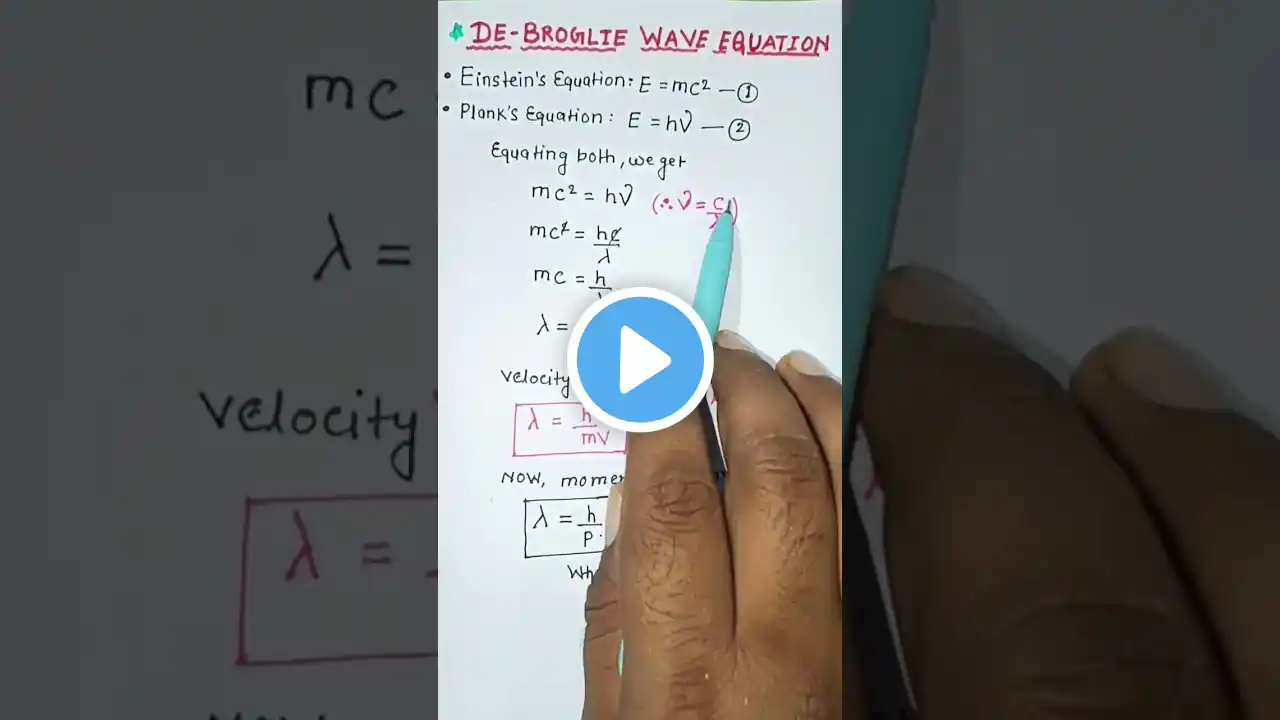 * DE-BROGLIE WAVE EQUATION
• Einstein's Equation: E = mc² — ①
• Plank's Equation: E = hν — ②
Equating both, we get
mc² = hν (∴ ν = c/λ)
mc² = hc/λ
mc = h
λ =
Velocity
λ = h/mv
NOW,
λ = h/p.